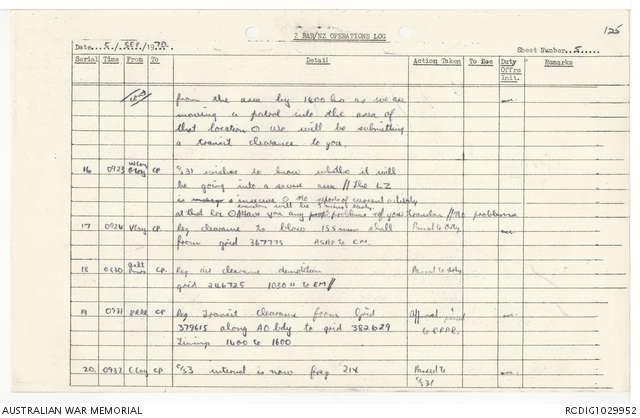 125
2 RAR/NZ OPERATIONS LOG
Date 5 / SEP / 1970
Sheet Number 5
Serial Time From To Detail Action Taken To Dec Duty Offrs Init. Remarks
from the area by 1400 hrs as we are
moving a patrol into the area of
that location O we will be submitting
a transit clearance to you.
16 0923 CP C/S31 wishes to know whether it will
be going into a secure area // The LZ
is insecure O No reports of current activity
at that loc O Have you any problems // No problems
17 0926 V Coy CP Req clearance to blow 155mm shell
from grid 367775 ASAP to CM.
18 CP Req air clearance demolition
grid 246725 1030 H to CM //
19 0931 CP Req Transit clearance from Grid
379615 along AO bdy to grid 382629
Timing 1400 to 1600
20 0937 C Coy CP C/S3 internal is now freq 21X Passed to
C/S31
AUSTRALIAN WAR MEMORIAL
RCDIG1029952